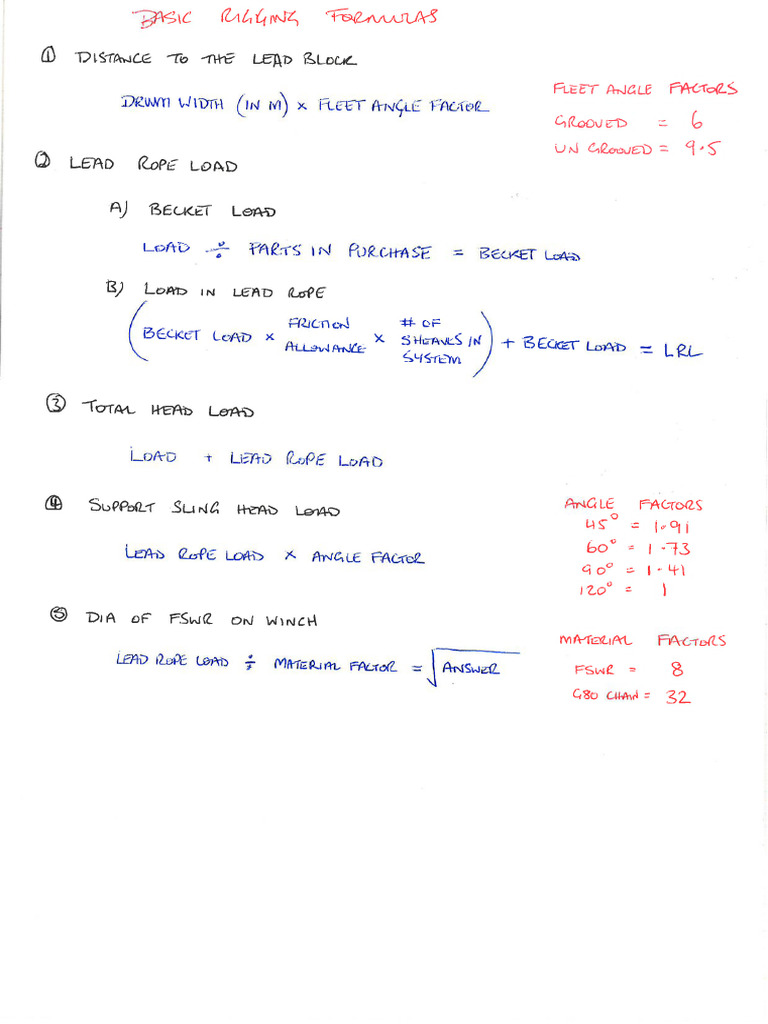 BASIC RIGGING FORMULAS
① DISTANCE TO THE LEAD BLOCK
DRUM WIDTH (IN M) × FLEET ANGLE FACTOR
FLEET ANGLE FACTORS
GROOVED = 6
UN GROOVED = 9.5
② LEAD ROPE LOAD
A) BECKET LOAD
LOAD ÷ PARTS IN PURCHASE = BECKET LOAD
B) LOAD IN LEAD ROPE
(BECKET LOAD × FRICTION ALLOWANCE × # OF SHEAVES IN SYSTEM) + BECKET LOAD = LRL
③ TOTAL HEAD LOAD
LOAD + LEAD ROPE LOAD
④ SUPPORT SLING HEAD LOAD
LEAD ROPE LOAD × ANGLE FACTOR
ANGLE FACTORS
45° = 1.91
60° = 1.73
90° = 1.41
120° = 1
⑤ DIA OF FSWR ON WINCH
LEAD ROPE LOAD ÷ MATERIAL FACTOR = √ANSWER
MATERIAL FACTORS
FSWR = 8
G80 CHAIN = 32